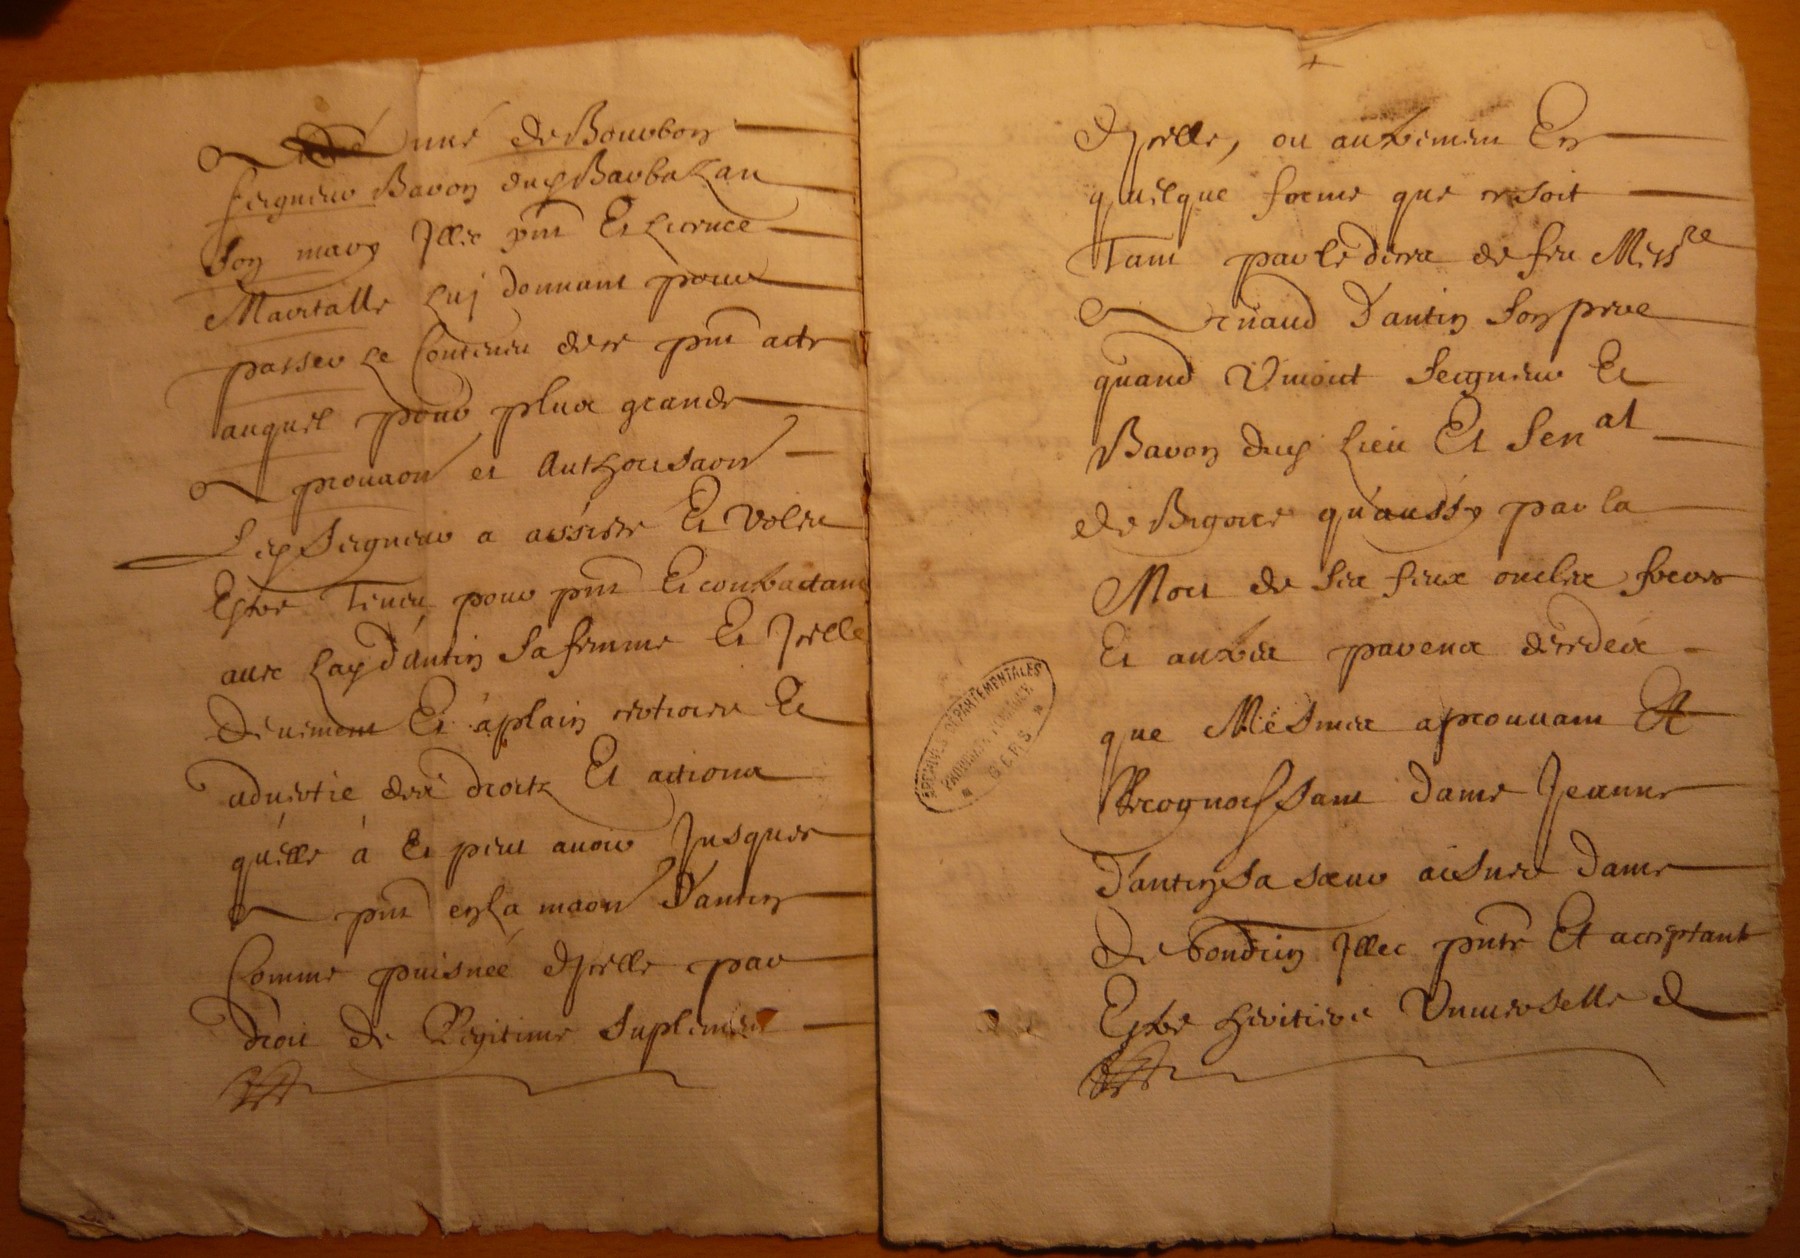 Anné de Bourbon
seigneur Baron duy Barbazan
son mary Illec pnt Et licence
Maritalle luj donnant pour
passer le Contenu de ce pnt acte
auquel pour plus grande
aprouaon et Authorisaon
Ley Seigneur a assisté Et voleu
Estre Teneu pour pnt Et contractant
auec Lay d'Antin sa femme Et Jcelle
Deuement Et aplain certiorée Et
aduertie des droitz Et actions
qu'elle à Et peut auoir Jusques
A pnt en La maon d'antin
Comme puisnée d'Jcelle par
droit de Legitime suplement
d'Jcelle, ou autrement En
quelque forme que ce soit
Tant par le déces de feu Messre
Arnaud d'antin son pere
quand Viuoit seigneur Et
Baron duy lieu Et Senal
de Bigorre qu'aussy par la
Mort de ses feux oncles freres
Et autres parens decedés
que Mesmes aprouuant Et
Recognoissant dame Jeanne
d'antin sa sœur aisnée dame
de Gondrin Illec pnte Et acceptant
Estre heritiere Vniuerselle d
ARCHIVES DÉPARTEMENTALES
GERS